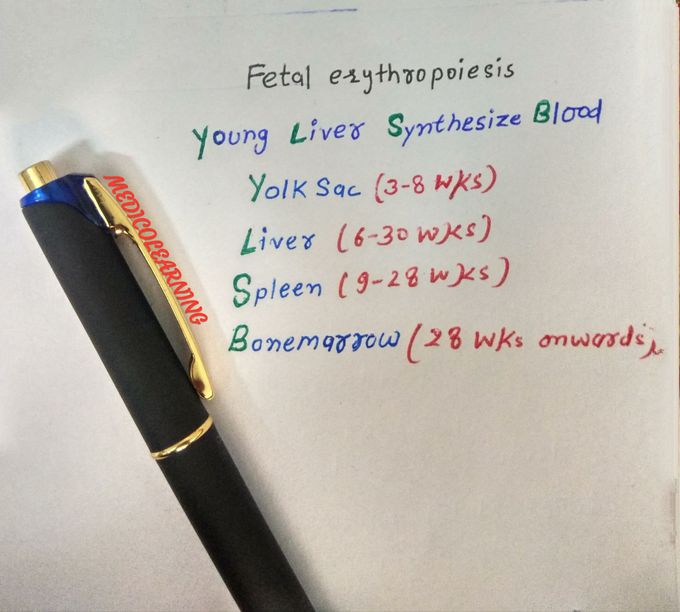 Fetal erythropoiesis
Young Liver Synthesize Blood
Yolk Sac (3-8 wks)
Liver (6-30 wks)
Spleen (9-28 wks)
Bonemarrow (28 wks onwards)
MEDICOLEARNING